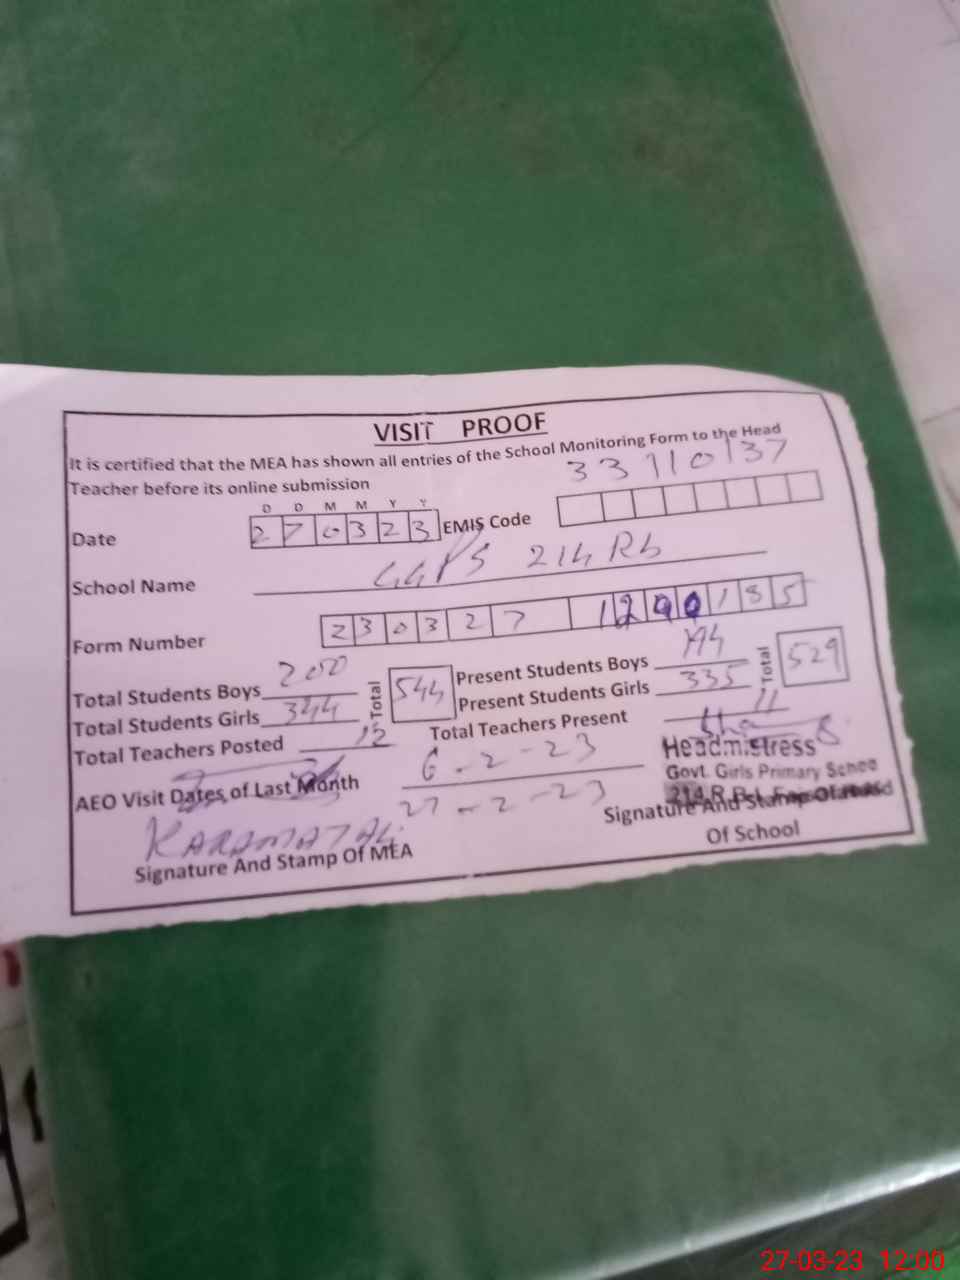 VISIT PROOF
It is certified that the MEA has shown all entries of the School Monitoring Form to the Head
Teacher before its online submission
33110137
D D M M Y Y
Date 270323 EMIS Code
School Name GGPS 214 Rb
Form Number 230327 1200185
Total Students Boys 200 Total 544 Present Students Boys 194 Total 529
Total Students Girls 344 Present Students Girls 335
Total Teachers Posted 12 Total Teachers Present 11
AEO Visit Dates of Last Month 6-2-23
27-2-23
Headmistress
Govt. Girls Primary School
214 R.B.
KARAMAT Ali
Signature And Stamp Of MEA
Signature And Stamp Of Head
Of School
27-03-23 12:00